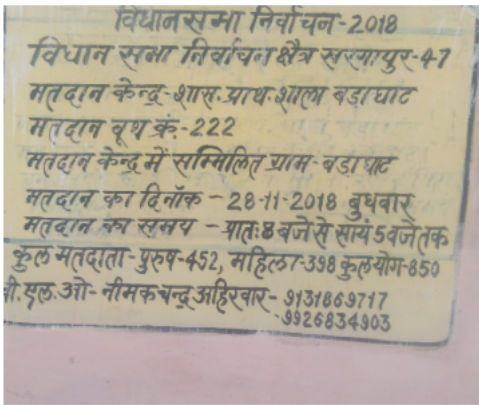 विधानसभा निर्वाचन-2018
विधान सभा निर्वाचन क्षेत्र खरगापुर-47
मतदान केन्द्र-शास. प्राथ. शाला बडाघाट
मतदान बूथ क्रं.-222
मतदान केन्द्र में सम्मिलित ग्राम-बडाघाट
मतदान का दिनाँक - 28-11-2018 बुधवार
मतदान का समय - प्रातः 8 बजे से सायं 5 बजे तक
कुल मतदाता-पुरुष-452, महिला-398 कुलयोग-850
बी.एल.ओ- नीमकचन्द्र अहिरवार- 9131869717
-9926834903